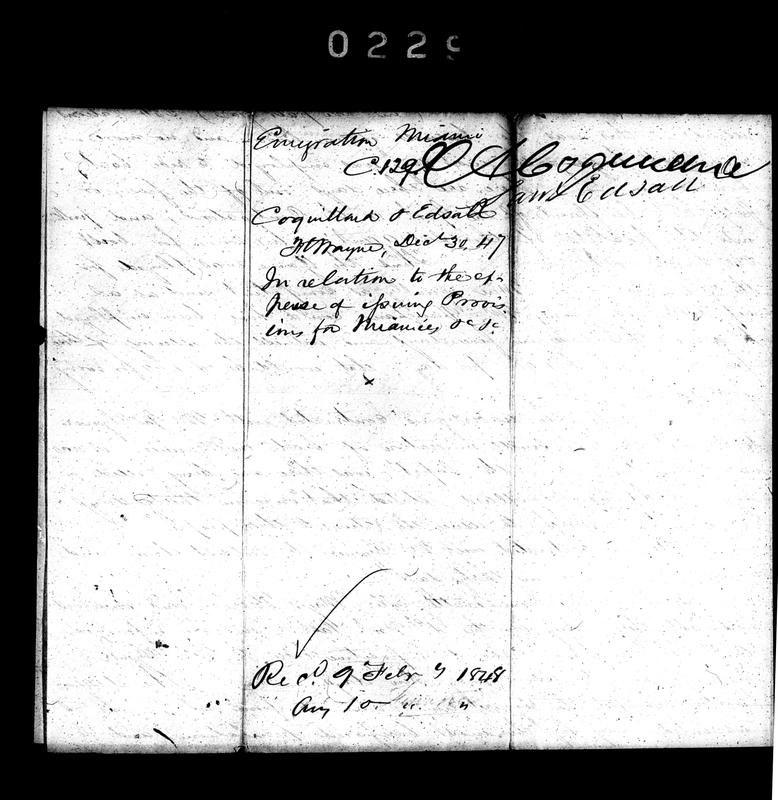 0229
Emigration Miami
C.129
A Coquillard
Saml Edsall
Coquillard & Edsall
Ft Wayne, Decr 30, 47
In relation to the ex-
pense of issuing Provis-
ions for Miamies &c &c
x
Recd 9 Feby 1848
Ans 10 " "